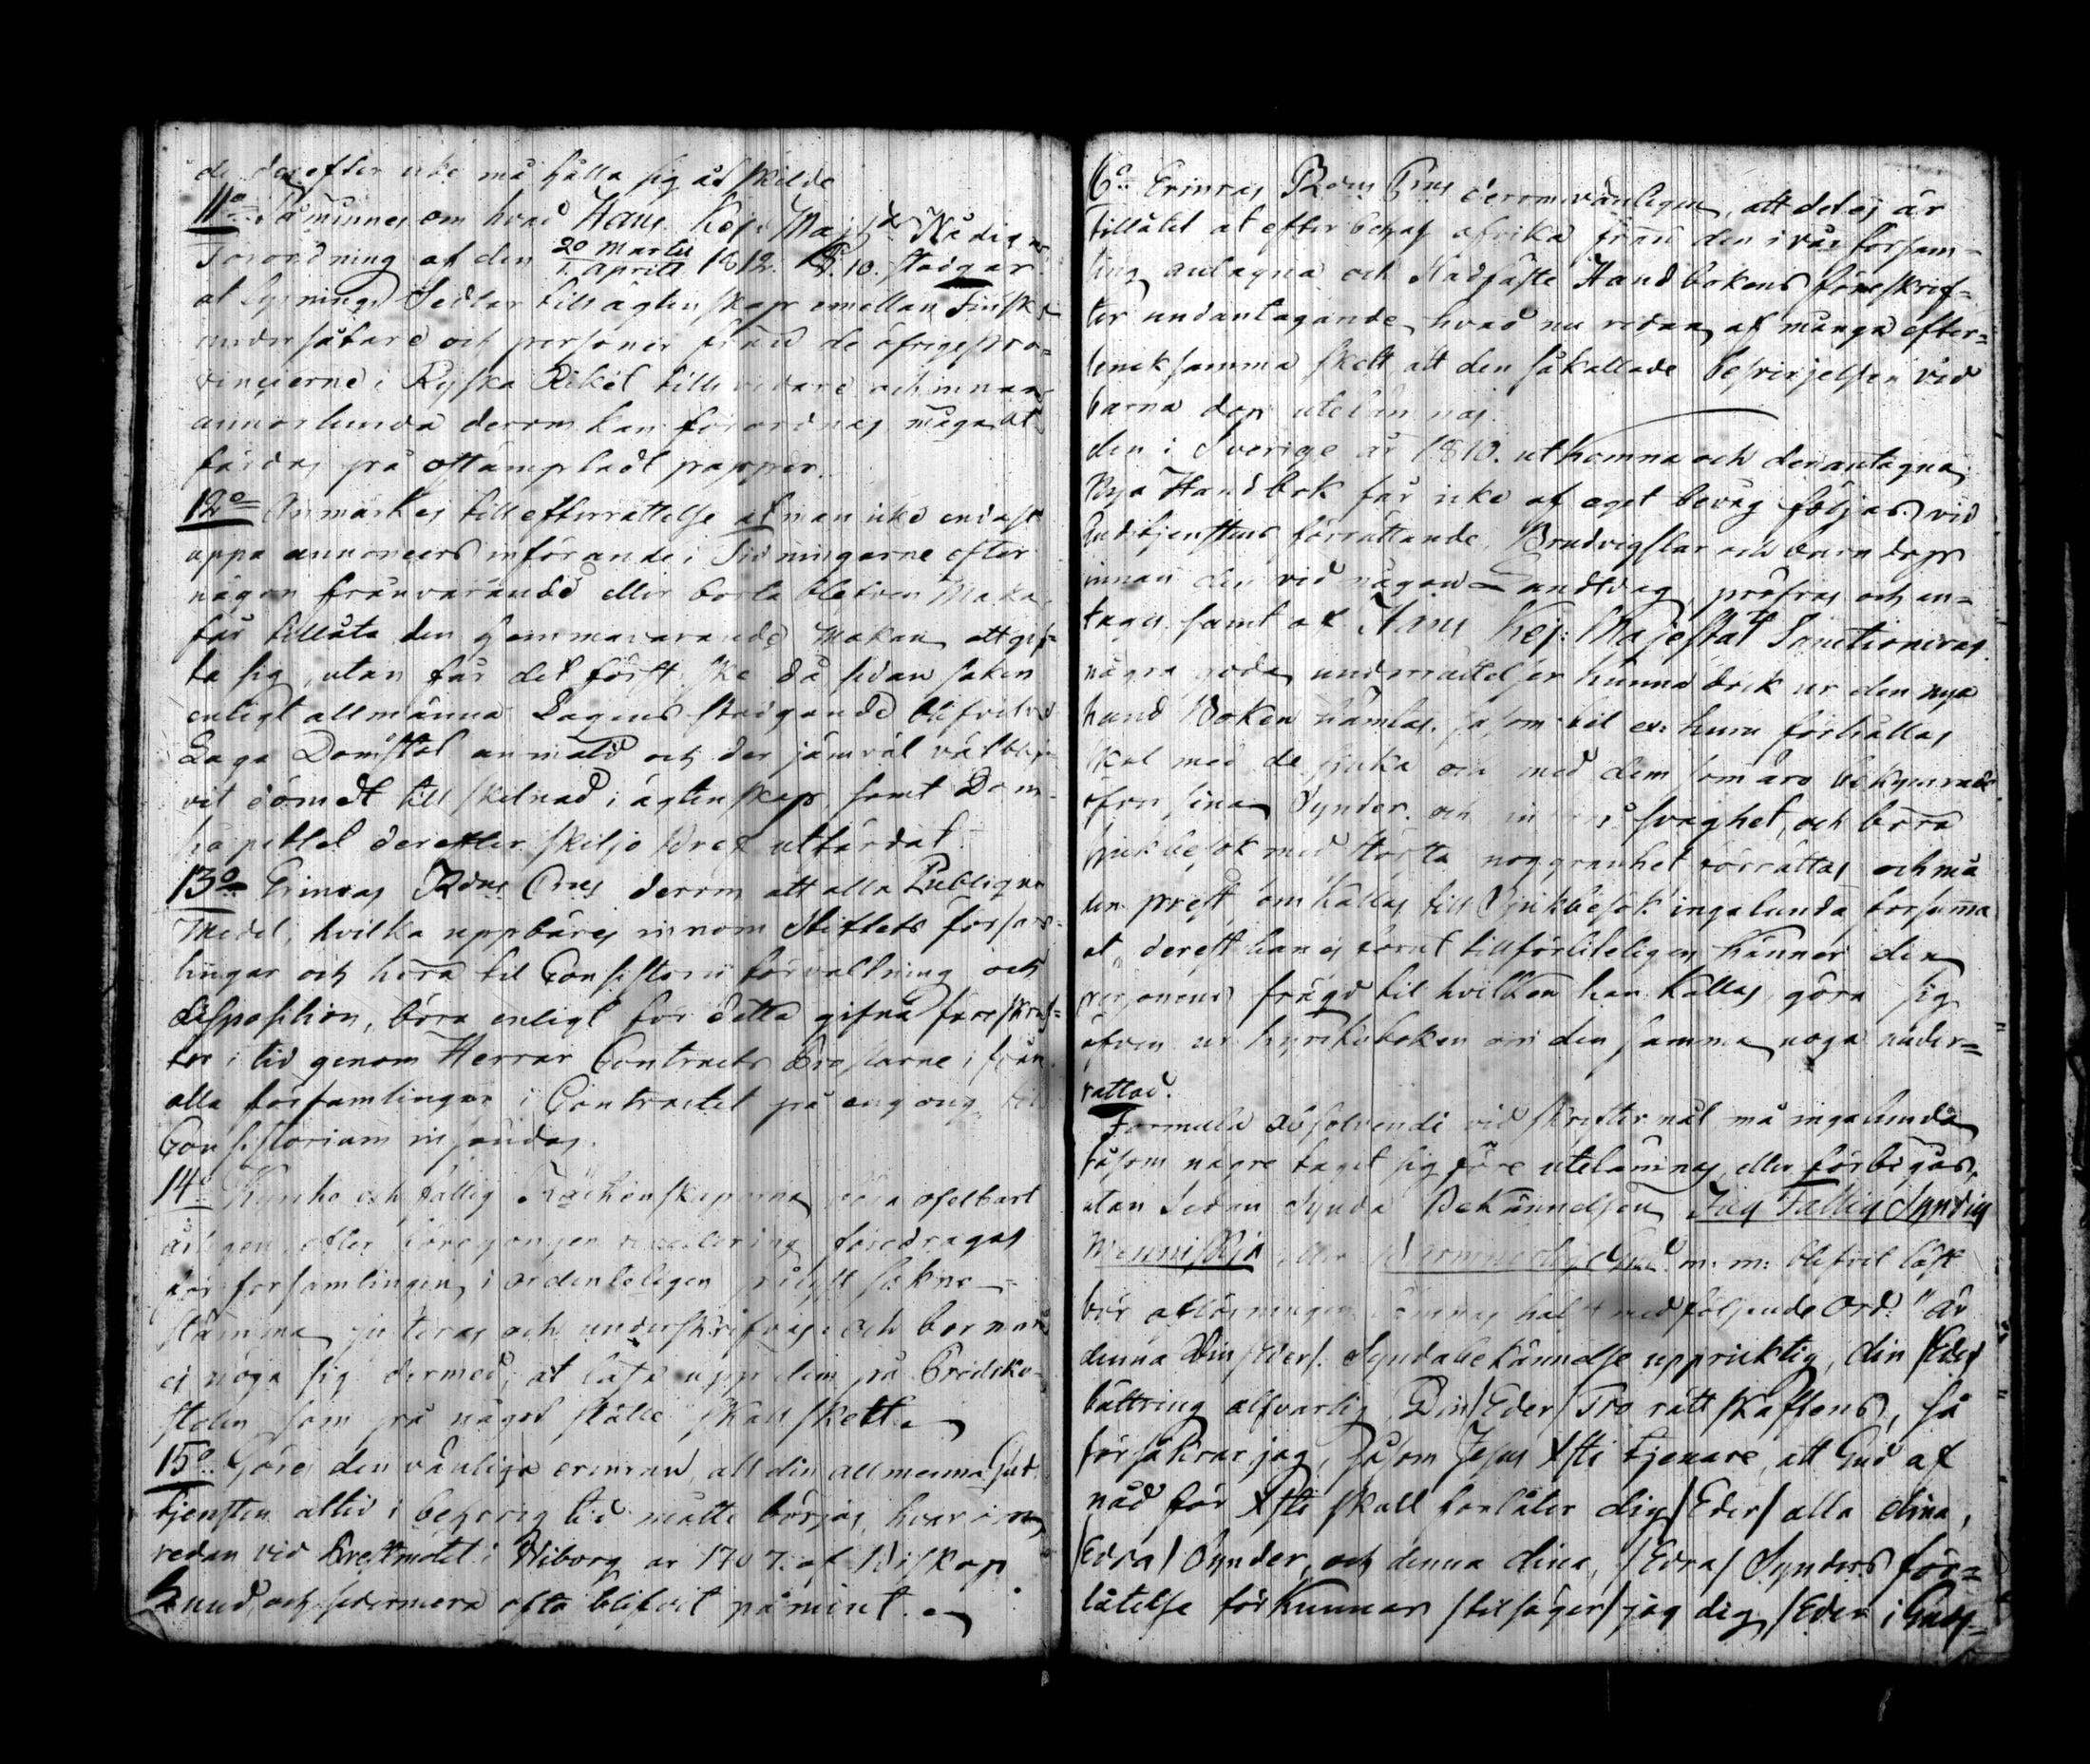 de derefter icke må hålla sig åtskilde
11o Påminnes om hvad Hans Kejs. Majts Nådiga
Förordning af den 20 Martii / 1. Aprill 1812. §. 10. stadgar
at Lysnings Sedlar till ägtenskap emellan Finska
undersåtare och personer från de öfrige pro=
vincierne i Ryska Riket tills vidare och innan
annorlunda derom kan förordnas måga ut
färdas på ostämpladt papper.
12o Anmärkes till efterrättelse at man icke endast
uppå annoncers införande i Tidningarne efter
någon frånvarande eller borta blefven Maka,
får tillåta den hemmavarande Makan att gif=
ta sig, utan får det först ske då sedan saken
enligt allmänna Lagens stadgande blifvit vid
Laga Domstol anmäld och der jämväl bli=
vit dömdt till skilnad i ägtenskap, samt Dom=
kapitlet derefter skiljobref utfärdat.
13o Erinras Rdus Crus derom att alla Publique
Medel, hvilka uppbäres innom Stiftets försam=
lingar och höra til Consistorii förvaltning och
disposition, böra enligt för detta gifna föreskrif=
ter i tid genom Herrar Contracts Prostarne ifrån
alla församlingar i Contractet på en gång till
Consistorium insändas.
14o Kyrko och fattig Räkenskaperna böra ofelbart
årligen, efter föregången revidering föredragas
för församlingen, i ordenteligen pålyst sokne=
stämma justeras och underskrifvas och bör man
ej nöja sig dermed, at läsa upp dem på Prediko=
stolen som på något ställe skall skett.
15o Göres den vänliga erinran, att den allmenna Gud
tjensten altid i behörig tid måtte börjas, hvar om
redan vid Prestmötet i Wiborg år 1707. af Biskop
Lund, och sedermera ofta blifvit påmint.
6o Erinras Rdus Crus derom vänligen, att det ej är
tillåtet at efter behag afvika från den i vår försam=
ling antagna och stadgäste Handbokens föreskrif=
ter undantagande hvad nu redan af många efter=
tänksamma skett att den såkallade besvärjelsen vid
barna dop utelämnas.
den i Sverige år 1810. utkomna och der antagna
Nya Handbok får icke af eget bevåg följas vid
Gudstjenstens förrättande, Brudvigslar och barn dop
innan den vid någon Landtdag pröfvas och an=
tages samt af Hans Kejs: Majestät Sanctioneras.
några goda underrättelser kunna dock ur den nya
hand Boken hämtas, såsom til ex: huru förhållas
skal med de sjuka och med dem som äro bekymrade
öfver sina Synder och sin svaghet, och böra
Sjukbesök med största noggranhet förrättas och må
den prest, som kallas till Sjukbesök ingalunda försumma
at, derest han ej förut tillförliteligen känner den
personens frägd til hvilken han kallas, göra sig
äfven ur kyrkoboken om den samma noga under=
rättad.
Formula absolvendi vid skriftermål må ingalunda
såsom någre taget sig före utelämnas eller förbigås,
utan Sedan Synda Bekännelsen Jag Fattig Syndig
Menniskja eller m: m: blifvit läst
bör aflösningen med följande Ord: "är
denna Din /Eder/ Syndabekännelse uppriktig, din /Eder/
bättring alfvarlig, Din /Eder/ Tro rättskaffens, så
försäkrar jag, såsom Jesus Xsti tjenare, att Gud af
nåd för Xsti skull förlåter dig /Eder/ alla dina,
/Edra/ Synder, och denna dina, /Edra/ Synders för=
låtelse förkunnar /tilsäger/ jag dig /Eder i Guds=